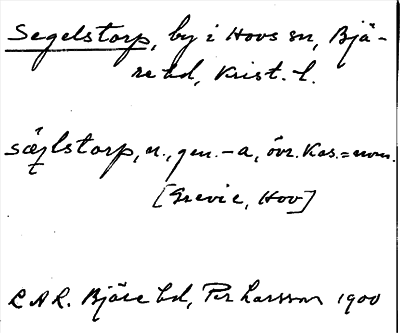 Segelstorp, by i Hovs sn, Bjä-
re hd, Krist. l.
sǽ̨lstorp, n., gen. -a, övr. kas. = nom.
[Grevie, Hov]
L A L. Bjäre hd, Per Larsson 1900